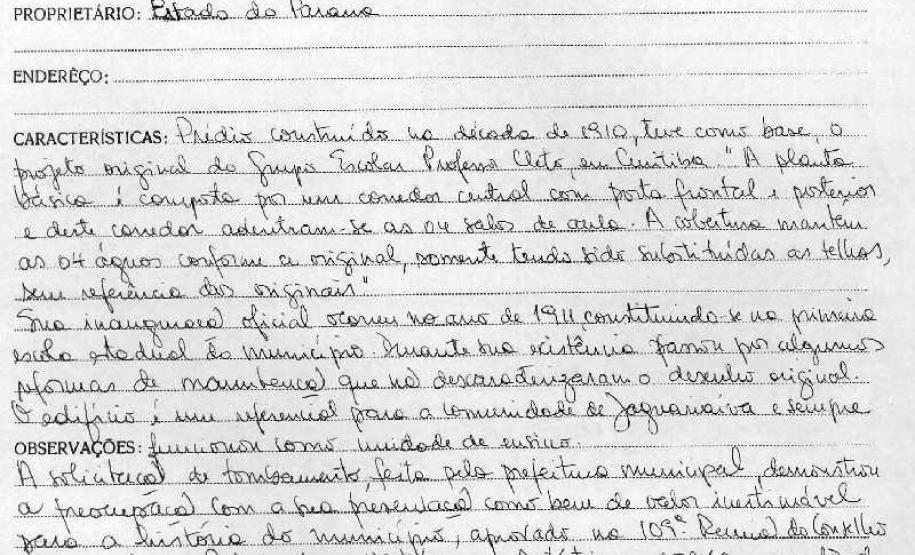 PROPRIETÁRIO: Estado do Paraná
ENDERÊÇO:
CARACTERÍSTICAS: Prédio construído na década de 1910, teve como base, o
projeto original do Grupo Escolar Professor Cleto, em Curitiba. "A planta
básica é composta por um corredor central com porta frontal e posterior
e deste corredor adentram-se as 04 salas de aula. A cobertura mantém
as 04 águas conforme a original, somente tendo sido substituídas as telhas,
sem referência das originais"
Sua inauguração oficial ocorreu no ano de 1911, constituindo-se na primeira
escola estadual do município. Durante sua existência passou por algumas
reformas de manutenção que não descaracterizaram o desenho original.
O edifício é um referencial para a comunidade de Jaguariaíva e sempre
OBSERVAÇÕES: funcionou como unidade de ensino.
A solicitação de tombamento, feita pela prefeitura municipal, demonstrou
a preocupação com a sua preservação como bem de valor inestimável
para a história do município, aprovado na 109ª Reunião do Conselho